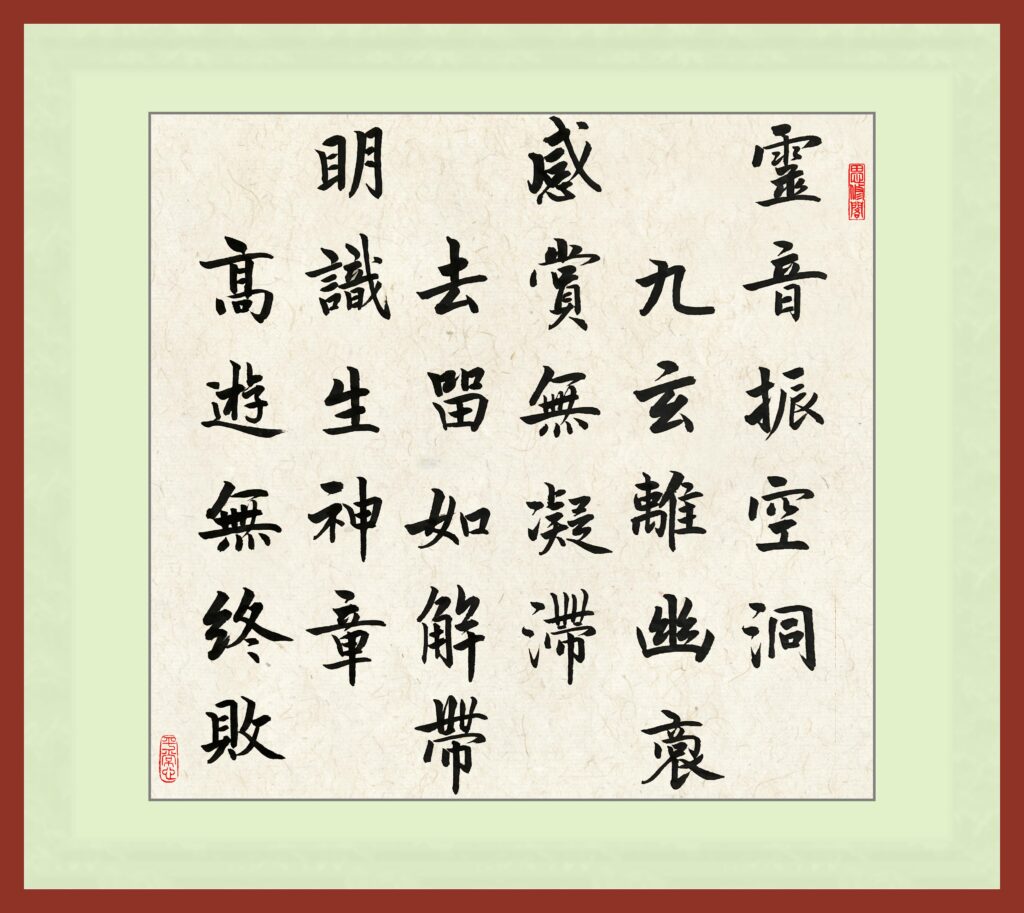 思修閣
靈音振空洞
九玄離幽裔
感賞無凝滯
去留如解帶
明識生神章
高遊無終敗
平常心